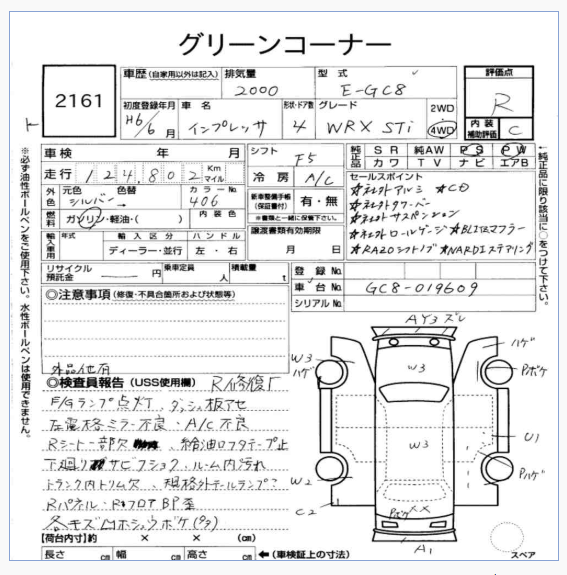 グリーンコーナー
2161
車歴 (自家用以外は記入)
排気量
2000
型式
E-GC8
評価点
R
初度登録年月
H6/6 月
車名
インプレッサ
形状・ドア数
4
グレード
WRX STi
2WD
4WD
内装
補助評価
C
車検 年 月
シフト
F5
純正品
SR 純AW PS PW
カワ TV ナビ エアB
走行 124,802 Km マイル
冷房
A/C
セールスポイント
外色
元色
シルバー
色替
カラーNo.
406
新車整備手帳
(保証書付)
有・無
※書類と一緒に保管下さい。
燃料
ガソリン・軽油・( )
内装色
輸入車用
年式
輸入区分
ディーラー・並行
ハンドル
左・右
譲渡書類有効期限
月 日
☆社外アルミ ☆CD
☆社外タワーバー
☆社外サスペンション
☆社外ロールゲージ ☆BLITZマフラー
☆RAZOシフトノブ ☆NARDIステアリング
リサイクル
預託金
円
乗車定員
人
積載量
t
登録No.
車台No.
GC8-019609
シリアルNo.
◎注意事項 (修復・不具合箇所および状態等)
外品他有
◎検査員報告 (USS使用欄) R修復歴
E/Gランプ点灯 ダッシュ板アセ
左電格ミラー不良・A/C不良
Rシート一部欠 給油ロフタテープ止
下廻りサビ ルーム内汚れ
トランク内トリム欠 規格外テールランプ?
Rパネル・RフロアBP歪
各キズ凹ホシュウボケ
AY3ズレ
W3
ハゲ
W3
ハゲ
Pボケ
W3
U1
W2
Pハゲ
C2
Pボケ
XX
A1
スペア
【荷台内寸】約 × × (㎝)
長さ ㎝ 幅 ㎝ 高さ ㎝ ←(車検証上の寸法)
※必ず油性ボールペンをご使用下さい。水性ボールペンは使用できません。
←純正品に限り該当に○をつけて下さい。